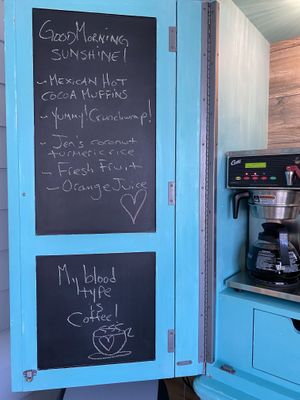 GOOD MORNING
SUNSHINE!
- MEXICAN HOT
COCOA MUFFINS
- Yummy! Crunchwrap!
- Jen's coconut
turmeric rice
- Fresh Fruit
- Orange Juice
My blood
type
is
Coffee!
Curtis